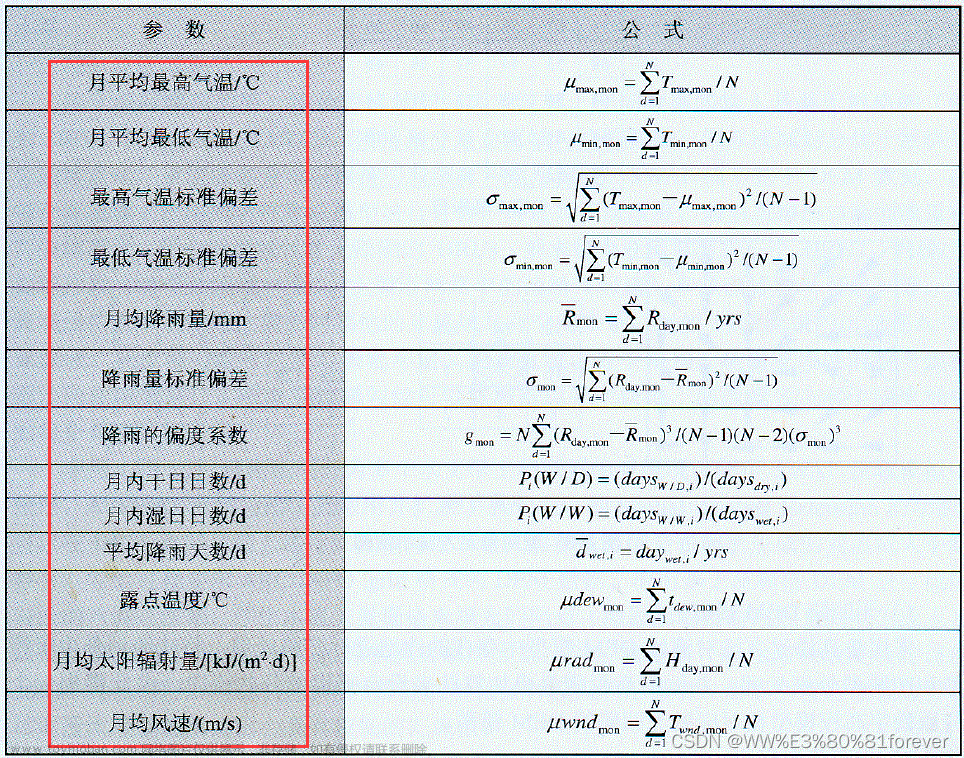 参 数 公 式
月平均最高气温/℃ μmax,mon = ∑(d=1→N) Tmax,mon / N
月平均最低气温/℃ μmin,mon = ∑(d=1→N) Tmin,mon / N
最高气温标准偏差 σmax,mon = √(∑(d=1→N) (Tmax,mon − μmax,mon)² /(N−1))
最低气温标准偏差 σmin,mon = √(∑(d=1→N) (Tmin,mon − μmin,mon)² /(N−1))
月均降雨量/mm R̅mon = ∑(d=1→N) Rday,mon / yrs
降雨量标准偏差 σmon = √(∑(d=1→N) (Rday,mon − R̅mon)² /(N−1))
降雨的偏度系数 gmon = N∑(d=1→N) (Rday,mon − R̅mon)³ /(N−1)(N−2)(σmon)³
月内干日日数/d Pi(W / D) = (daysW/D,i)/(daysdry,i)
月内湿日日数/d Pi(W / W) = (daysW/W,i)/(dayswet,i)
平均降雨天数/d d̅wet,i = daywet,i / yrs
露点温度/℃ μdewmon = ∑(d=1→N) tdew,mon / N
月均太阳辐射量/[kJ/(m²·d)] μradmon = ∑(d=1→N) Hday,mon / N
月均风速/(m/s) μwndmon = ∑(d=1→N) Twnd,mon / N
CSDN @WW%E3%80%81forever